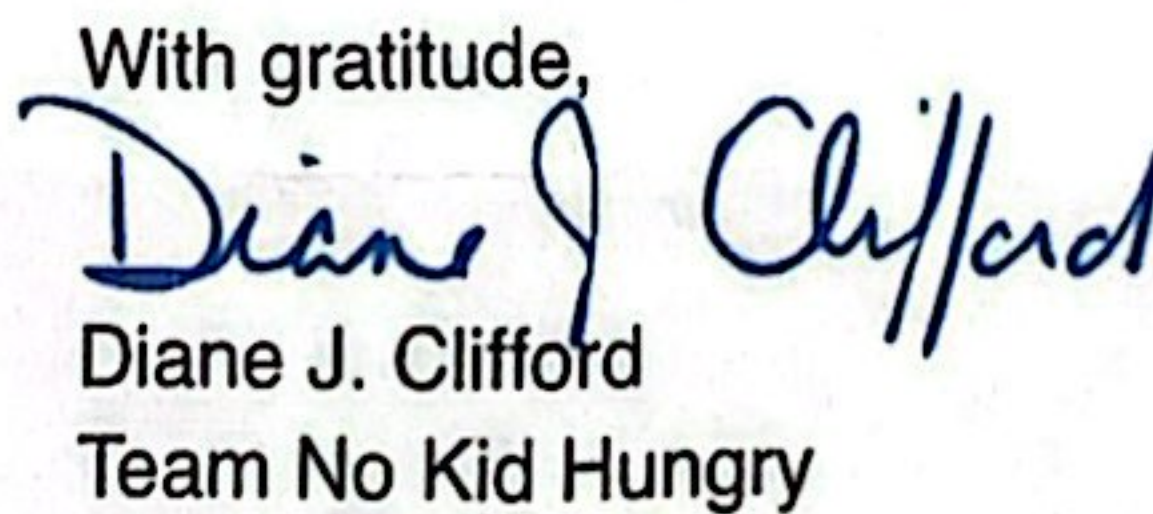 With gratitude,
Diane J Clifford
Diane J. Clifford
Team No Kid Hungry